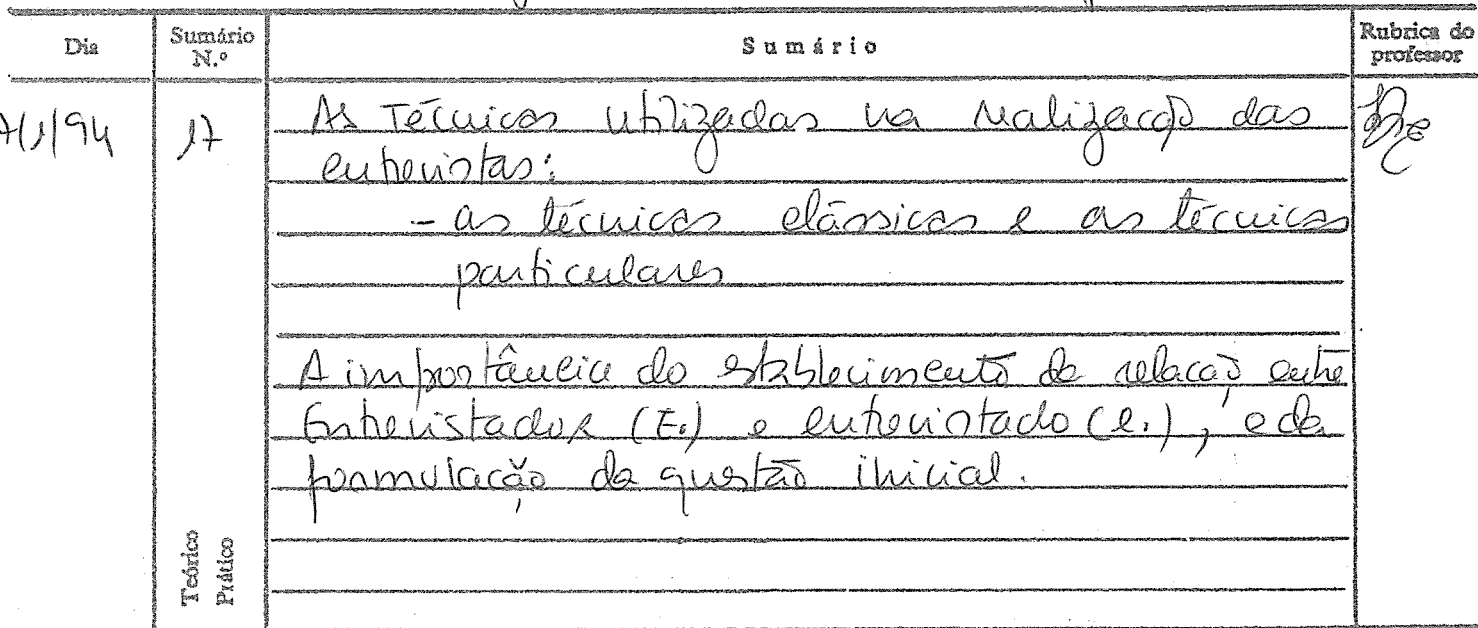 Dia Sumário N.º Sumário Rubrica do professor
7/1/94 17 As Técnicas utilizadas na realização das
entrevistas:
- as técnicas clássicas e as técnicas
particulares
A importância do estabelecimento da relação entre
Entrevistador (E.) e entrevistado (e.), e da
formulação da questão inicial.
Teórico
Prático